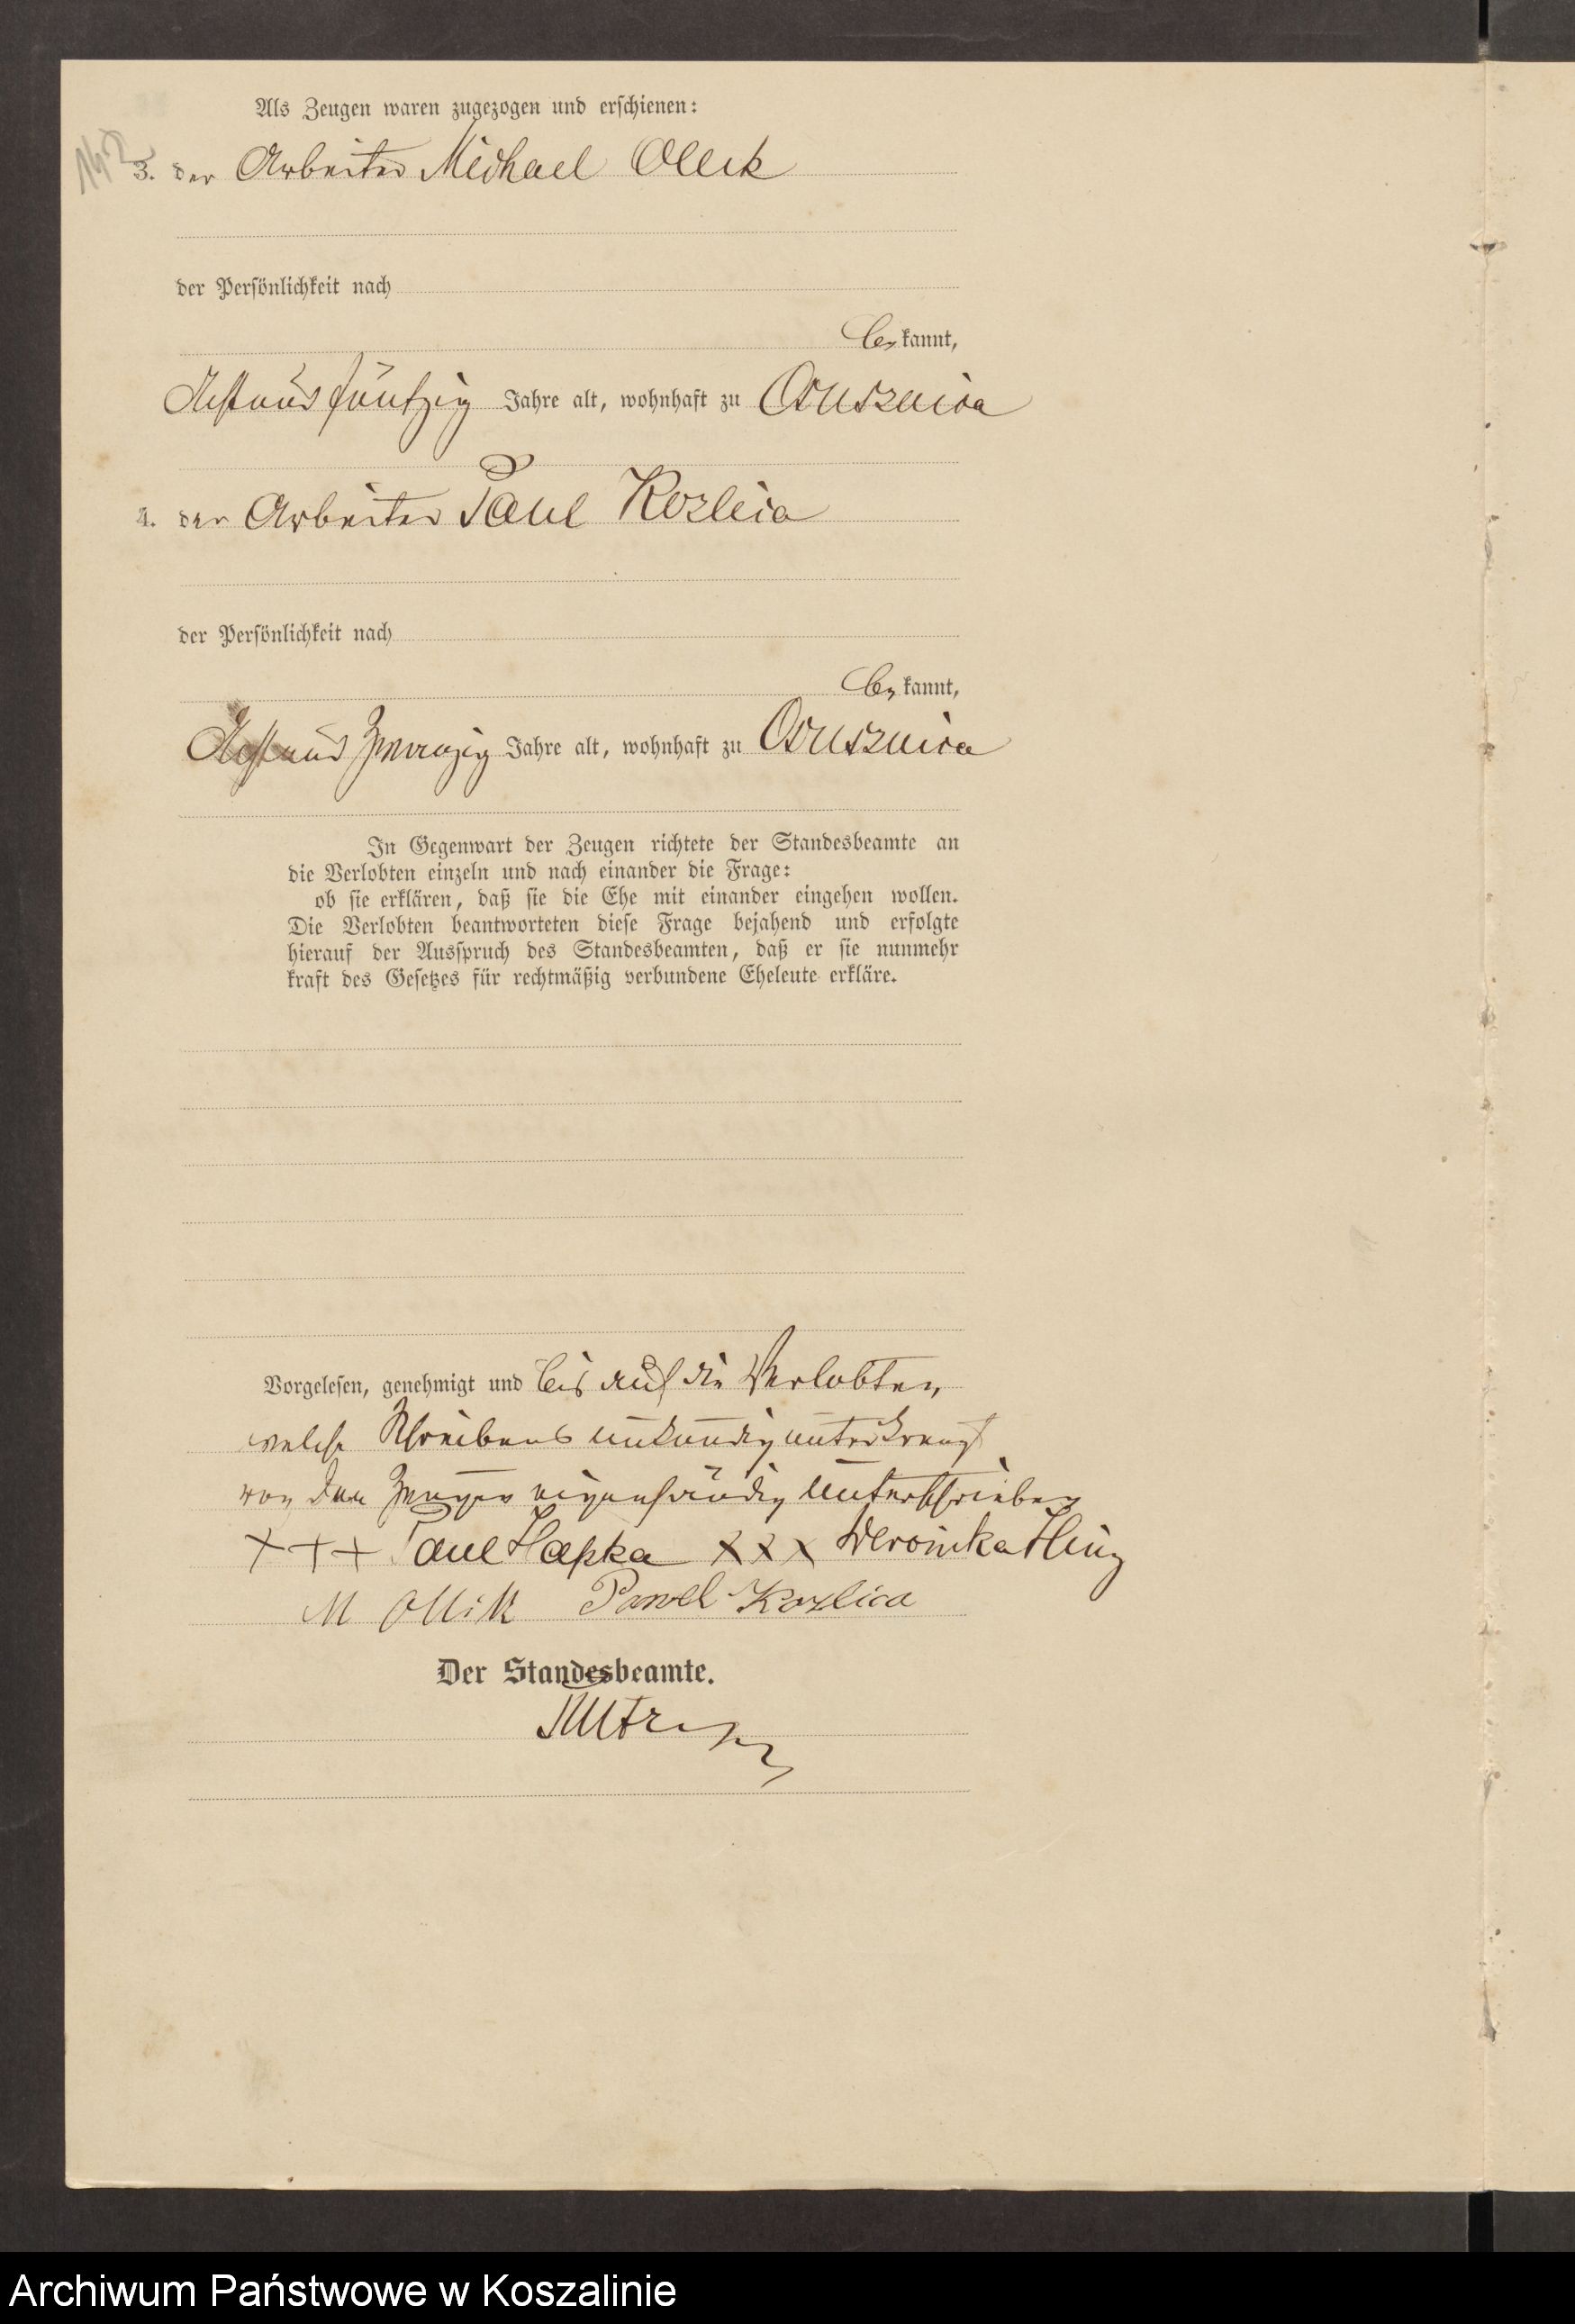 Als Zeugen waren zugezogen und erschienen:
3. der Arbeiter Michael Olleck
der Persönlichkeit nach
bekannt,
Achtundfünfzig Jahre alt, wohnhaft zu Ossusznica
4. der Arbeiter Paul Kozlica
der Persönlichkeit nach
bekannt,
Achtundzwanzig Jahre alt, wohnhaft zu Ossusznica
In Gegenwart der Zeugen richtete der Standesbeamte an
die Verlobten einzeln und nach einander die Frage:
ob sie erklären, daß sie die Ehe mit einander eingehen wollen.
Die Verlobten beantworteten diese Frage bejahend und erfolgte
hierauf der Ausspruch des Standesbeamten, daß er sie nunmehr
kraft des Gesetzes für rechtmäßig verbundene Eheleute erkläre.
Vorgelesen, genehmigt und bis auf die Verlobten,
welche Schreibens unkundig unterkreuzt
von den Zeugen eigenhändig unterschrieben
+++ Paul Hapka xxx Weronika Hinz
M Ollik Pawel Kozlica
Der Standesbeamte.
Archiwum Państwowe w Koszalinie